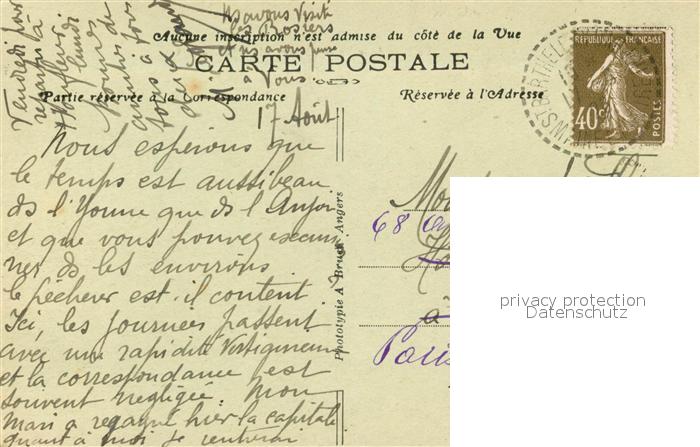 Aucune inscription n'est admise du côté de la Vue
CARTE POSTALE
Partie réservée à la Correspondance
Réservée à l'Adresse
REPUBLIQUE FRANÇAISE
40c
POSTES
ST BARTHELEMY
Vendredi
lundi
avons visité
les rosiers
et avons
à vous
17 Août
Nous espérons que
le temps est aussi beau
ds l'Yonne que ds l'Anjou
et que vous pouvez excursion
ner ds les environs
le pêcheur est-il content?
Ici, les journées passent
avec une rapidité vertigineuse
et la correspondance est
souvent négligée. Mon
Mari a regagné hier la capitale
quant à moi je rentrerai
Phototypie A Bruel Angers
68
à
Paris
privacy protection
Datenschutz